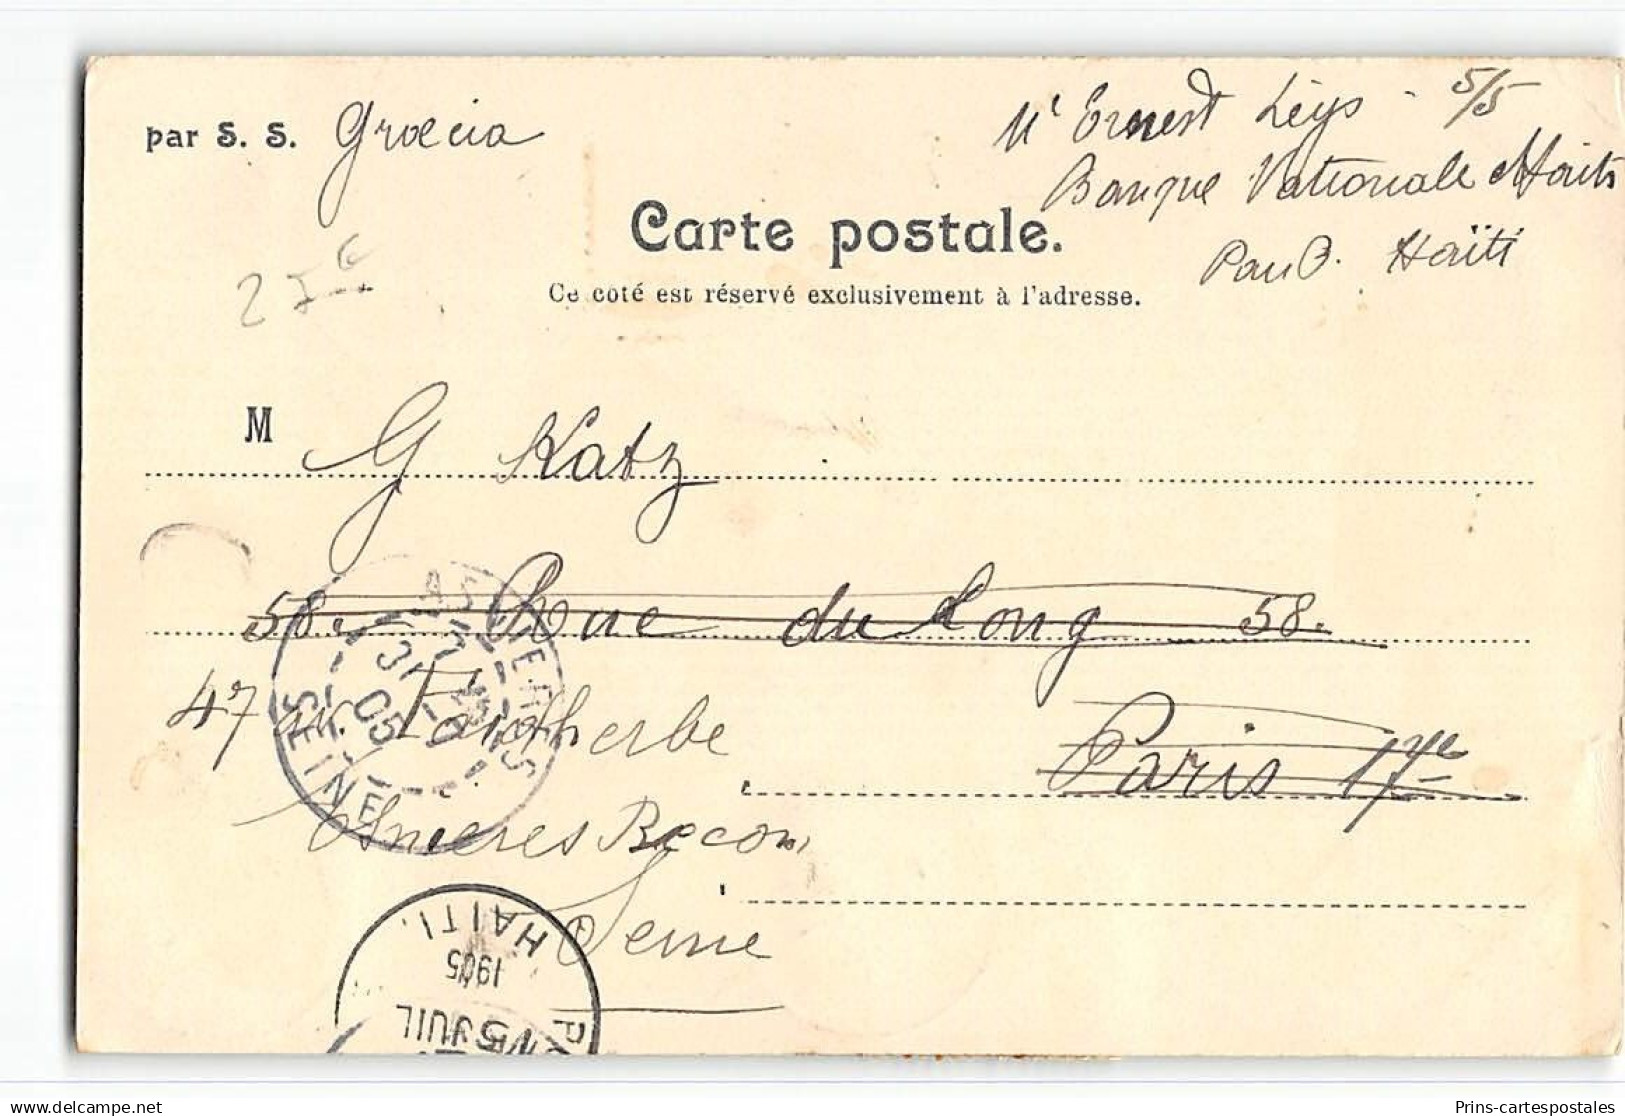 par S. S. Groecia
Mr Ernest Leys - 5/5
Banque Nationale d'Haïti
PauP. Haïti
Carte postale.
Ce côté est réservé exclusivement à l'adresse.
M G Katz
58. Rue du Long 58.
47 av. Faidherbe
Paris 17e
Asnieres Becon
Seine
ASNIERES
31 - 7
05
SEINE
HAITI.
1905
15 JUIL
delcampe.net
Prins-cartespostales